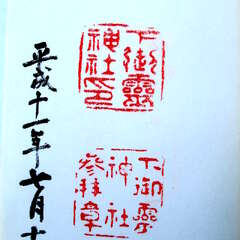 下御靈
神社印
下御霊
神社
參拜章
平成十一年七月十